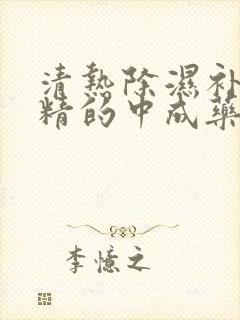 清熱除濕补
精的中成藥
李憶之